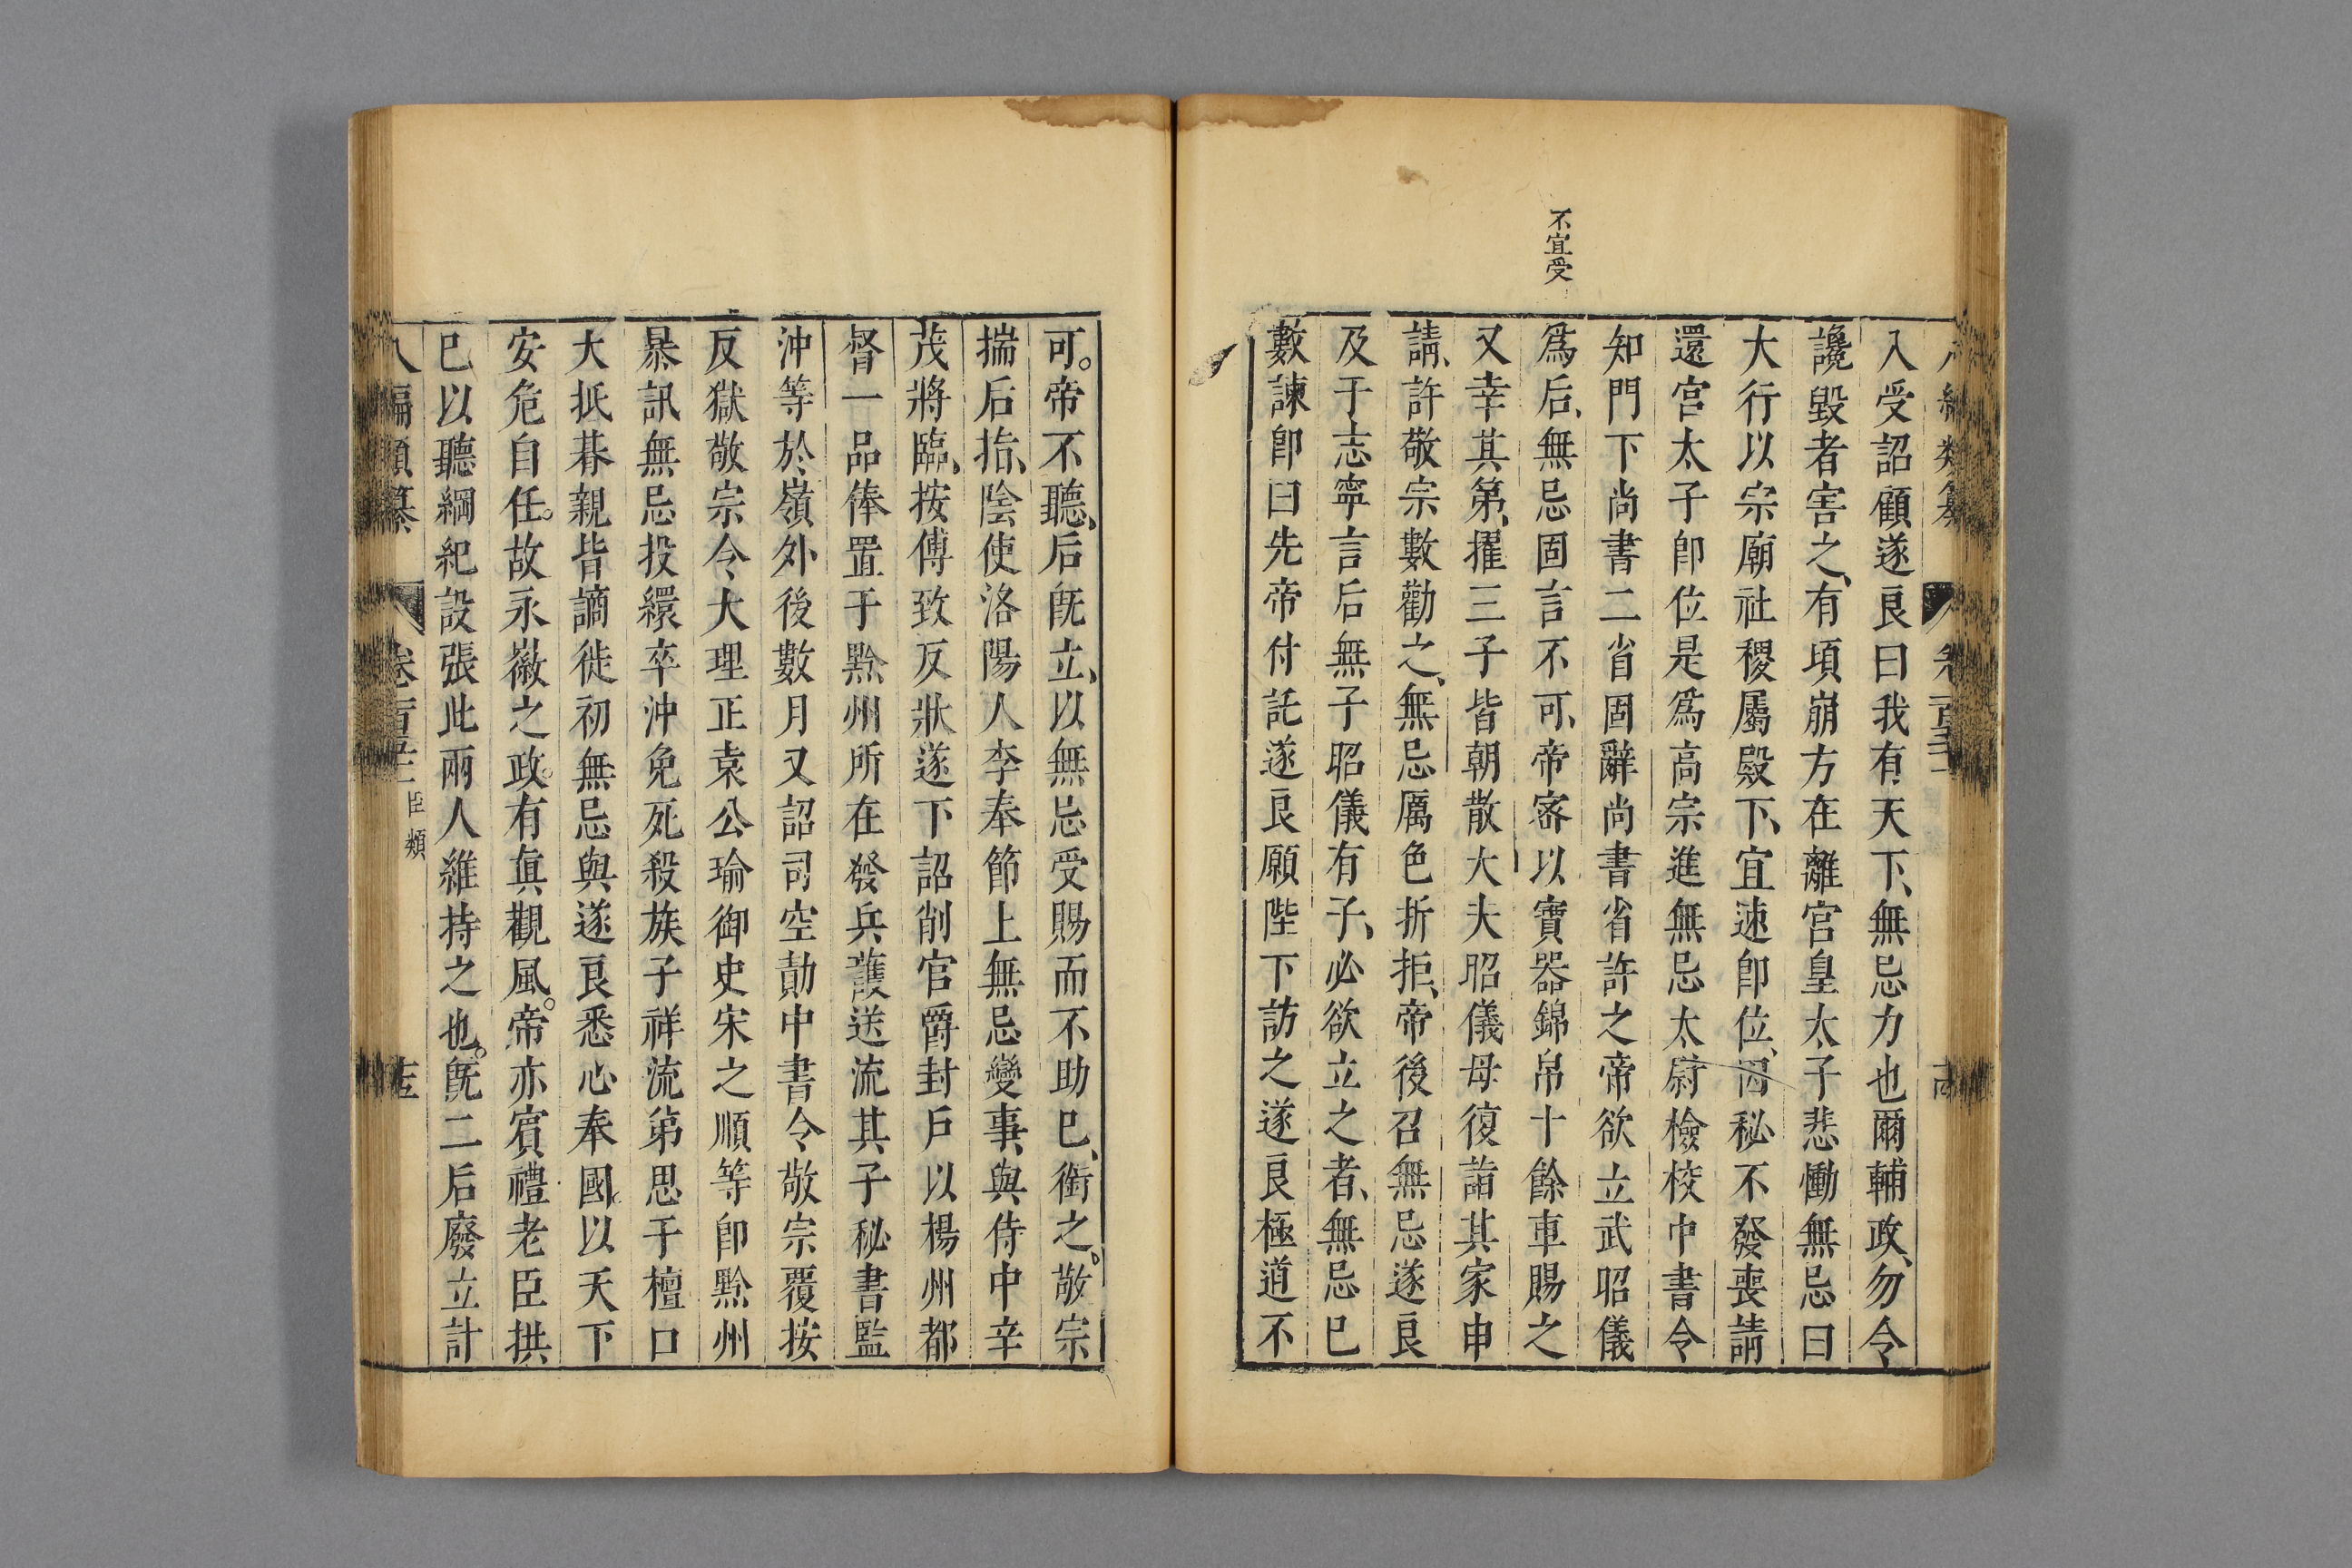 不宜受
入受詔顧遂良曰我有天下、無忌力也爾輔政、勿令
讒毀者害之、有頃崩方在離宮皇太子悲慟無忌曰
大行以宗廟社稷屬殿下、宜速卽位、因秘不發喪請
還宮太子卽位是爲高宗進無忌太尉檢校中書令
知門下尚書二省固辭尚書省許之帝欲立武昭儀
爲后、無忌固言不可、帝密以寶器錦帛十餘車賜之
又幸其第、擢三子皆朝散大夫昭儀母復詣其家申
請、許敬宗數勸之、無忌厲色折拒、帝後召無忌遂良
及于志寧言后無子昭儀有子、必欲立之者、無忌已
數諫卽曰先帝付託遂良願陛下訪之遂良極道不
可。帝不聽、后旣立、以無忌受賜而不助已、銜之。敬宗
揣后指、陰使洛陽人李奉節上無忌變事、與侍中辛
茂將臨、按傅致反狀遂下詔削官爵封戶以楊州都
督一品俸置于黔州所在發兵護送流其子秘書監
沖等於嶺外後數月又詔司空勣中書令敬宗覆按
反獄敬宗令大理正袁公瑜御史宋之順等卽黔州
暴訊無忌投繯卒沖免死殺族子祥流弟思于檀口
大抵朞親皆謫徙初無忌與遂良悉心奉國、以天下
安危自任。故永徽之政。有眞觀風。帝亦賓禮老臣拱
已以聽綱紀設張此兩人維持之也。旣二后廢立計
八編類纂 卷百 臣類